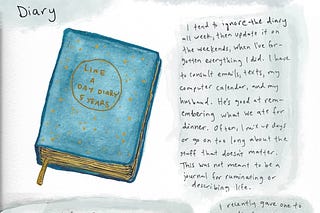 Diary
LINE
A
DAY DIARY
5 YEARS
I tend to ignore the diary
all week, then update it on
the weekends, when I've for-
gotten everything I did. I have
to consult emails, texts, my
computer calendar, and my
husband. He's good at rem-
embering what we ate for
dinner. Often, I mix up days
or go on too long about the
stuff that doesn't matter.
This was not meant to be a
journal for ruminating or
describing life.
I recently gave one to